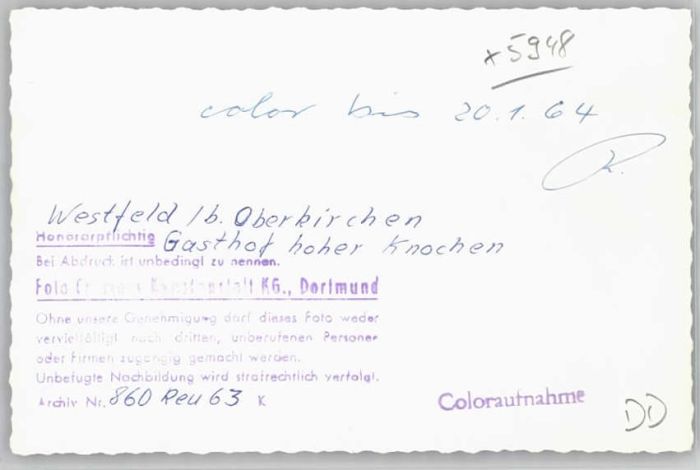 x 5948
color bis 20.1.64
R.
Westfeld / b. Oberkirchen
Honorarpflichtig Gasthof hoher Knochen
Bei Abdruck ist unbedingt zu nennen.
Foto Kunstanstalt KG., Dortmund
Ohne unsere Genehmigung darf dieses Foto weder
vervielfältigt noch dritten, unberufenen Personen
oder Firmen zugängig gemacht werden.
Unbefugte Nachbildung wird strafrechtlich verfolgt.
Archiv Nr. 860 Reu 63 K
Coloraufnahme
DD